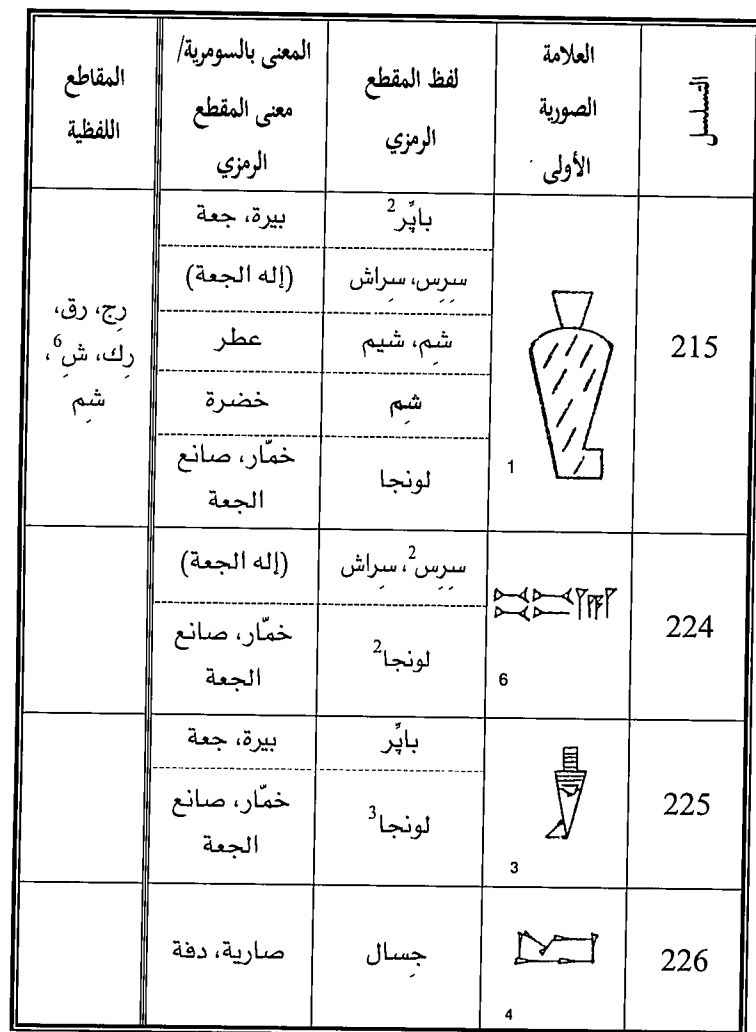 التسلسل
العلامة
الصورية
الأولى
لفظ المقطع
الرمزي
المعنى بالسومرية/
معنى المقطع
الرمزي
المقاطع
اللفظية
215
1
باپِّر²
بيرة، جعة
سِرِس، سِراش
(إله الجعة)
شِم، شيم
عطر
شِم
خضرة
لونجا
خمّار، صانع
الجعة
رِج، رق،
رِك، شِ⁶،
شِم
224
6
سِرِس²، سِراش
(إله الجعة)
لونجا²
خمّار، صانع
الجعة
225
3
باپِّر
بيرة، جعة
لونجا³
خمّار، صانع
الجعة
226
4
جِسال
صارية، دفة